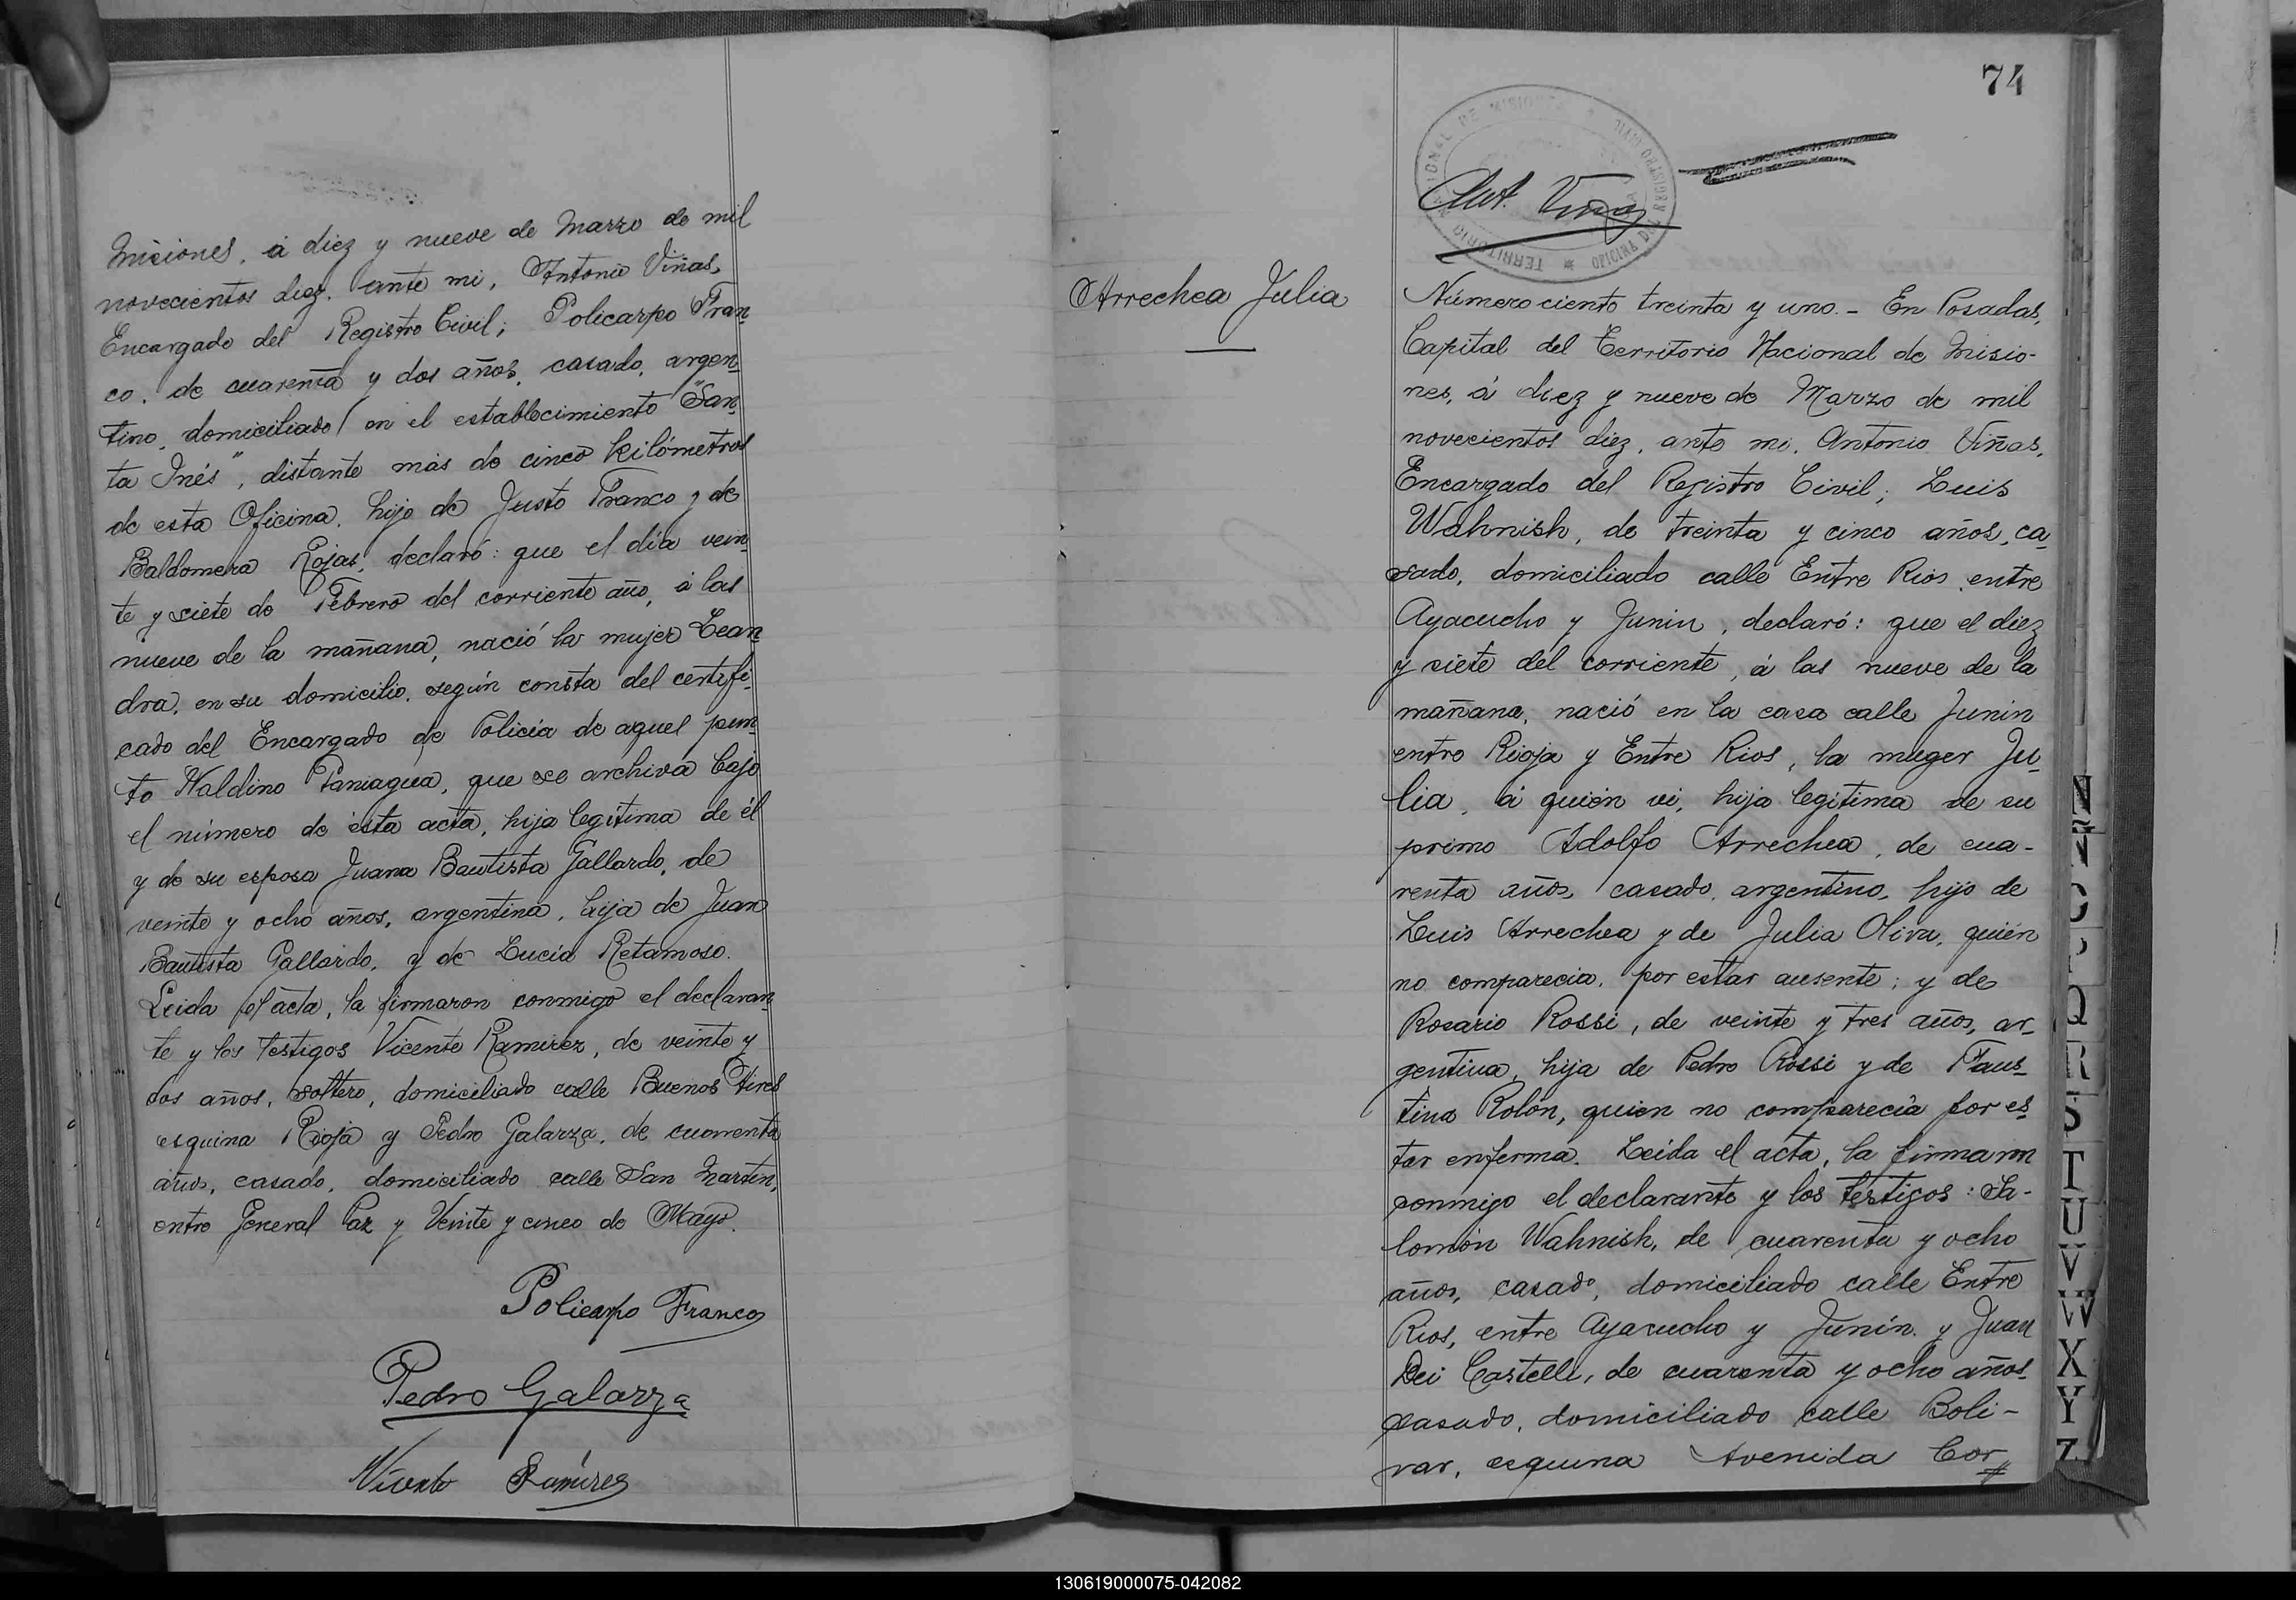 Misiones, á diez y nueve de Marzo de mil
novecientos diez. ante mi, Antonio Viñas,
Encargado del Registro Civil; Policarpo Fran
co, de cuarenta y dos años, casado, argen
tino, domiciliado en el establecimiento "San
ta Inés", distante más de cinco kilómetros
de esta Oficina, hijo de Justo Franco y de
Baldomera Rojas, declaró: que el día vein
te y siete de Febrero del corriente año, á las
nueve de la mañana, nació la mujer Lean
dra, en su domicilio, según consta del certifi
cado del Encargado de Policía de aquel pun
to Naldino Paniagua, que se archiva bajo
el número de esta acta, hija legítima de él
y de su esposa Juana Bautista Gallardo, de
veinte y ocho años, argentina, hija de Juan
Bautista Gallardo, y de Lucía Retamoso.
Leida el acta, la firmaron conmigo el declaran
te y los testigos Vicente Ramirez, de veinte y
dos años, soltero, domiciliado calle Buenos Aires
esquina Rioja y Pedro Galarza, de cuarenta
años, casado, domiciliado calle San Martin,
entre General Paz y Veinte y cinco de Mayo.
Policarpo Franco
Pedro Galarza
Vicente Ramires
74
TERRITORIO NACIONAL DE MISIONES
OFICINA DEL REGISTRO CIVIL
Ant. Viñas
Arrechea Julia
Número ciento treinta y uno.- En Posadas,
Capital del Territorio Nacional de Misio-
nes, á diez y nueve de Marzo de mil
novecientos diez, ante mi, Antonio Viñas,
Encargado del Registro Civil; Luis
Wahnish, de treinta y cinco años, ca
sado, domiciliado calle Entre Rios, entre
Ayacucho y Junin, declaró: que el diez
y siete del corriente, á las nueve de la
mañana, nació en la casa calle Junin
entre Rioja y Entre Rios, la muger Ju
lia, á quién vi, hija legítima de su
primo Adolfo Arrechea, de cua-
renta años, casado, argentino, hijo de
Luis Arrechea y de Julia Oliva, quién
no comparecia, por estar ausente; y de
Rosario Rossi, de veinte y tres años, ar
gentina, hija de Pedro Rossi y de Faus
tina Rolón, quien no comparecía por es
tar enferma. Leida el acta, la firmaron
conmigo el declarante y los testigos: Sa-
lomón Wahnish, de cuarenta y ocho
años, casado, domiciliado calle Entre
Rios, entre Ayacucho y Junín, y Juan
Dei Castelli, de cuarenta y ocho años,
casado, domiciliado calle Boli-
var, esquina Avenida Cor
N
Ñ
O
P
Q
R
S
T
U
V
W
X
Y
Z
130619000075-042082